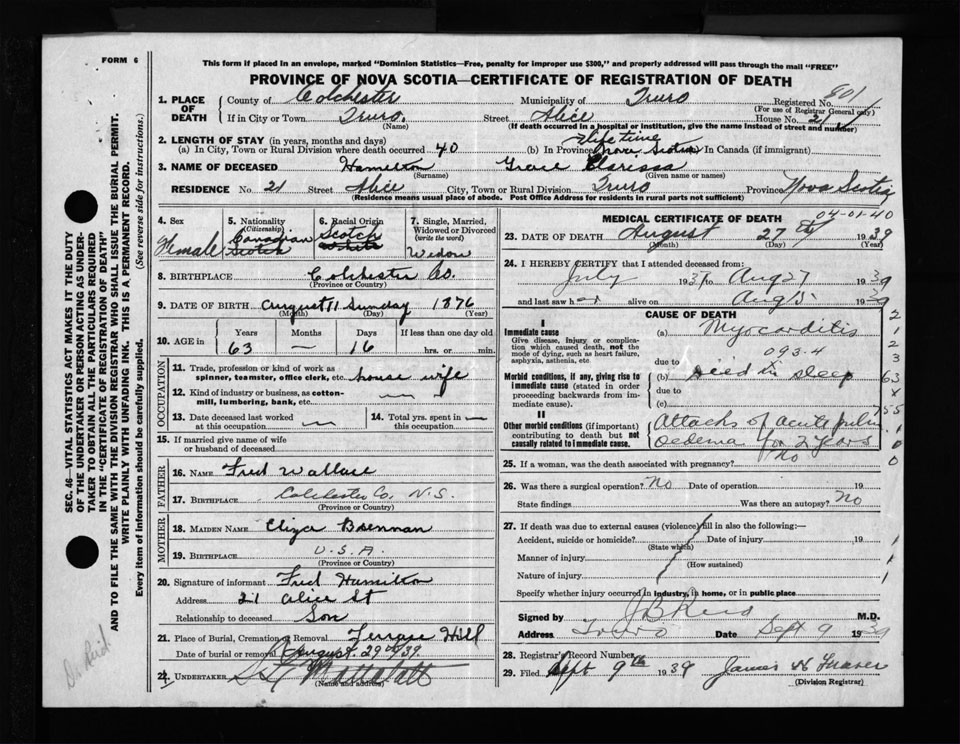 FORM 6
This form if placed in an envelope, marked "Dominion Statistics—Free, penalty for improper use $300," and properly addressed will pass through the mail "FREE"
PROVINCE OF NOVA SCOTIA—CERTIFICATE OF REGISTRATION OF DEATH
1. PLACE OF DEATH County of Colchester Municipality of Truro Registered No. 801
(For use of Registrar General only)
If in City or Town Truro. Street Alice House No. 21
(Name) (If death occurred in a hospital or institution, give the name instead of street and number)
2. LENGTH OF STAY (in years, months and days) life time
(a) In City, Town or Rural Division where death occurred 40 (b) In Province Nova Scotia In Canada (if immigrant)
3. NAME OF DECEASED Hamilton Grace Clarissa
(Surname) (Given name or names)
RESIDENCE No. 21 Street Alice City, Town or Rural Division Truro Province Nova Scotia
(Residence means usual place of abode. Post Office Address for residents in rural parts not sufficient)
4. Sex Female
5. Nationality (Citizenship) Canadian Scotch
6. Racial Origin Scotch White
7. Single, Married, Widowed or Divorced (write the word) Widow
8. BIRTHPLACE Colchester Co.
(Province or Country)
9. DATE OF BIRTH August 11 Sunday 1876
(Month) (Day) (Year)
10. AGE in Years Months Days If less than one day old
63 — 16 hrs. or min.
OCCUPATION
11. Trade, profession or kind of work as spinner, teamster, office clerk, etc. house wife
12. Kind of industry or business, as cotton-mill, lumbering, bank, etc.
13. Date deceased last worked at this occupation
14. Total yrs. spent in this occupation
15. If married give name of wife or husband of deceased
FATHER
16. NAME Fred Wallace
17. BIRTHPLACE Colchester Co. N.S.
(Province or Country)
MOTHER
18. MAIDEN NAME Eliza Brennan
19. BIRTHPLACE U.S.A.
(Province or Country)
20. Signature of informant Fred Hamilton
Address 21 Alice St
Relationship to deceased Son
21. Place of Burial, Cremation or Removal Terrace Hill
Date of burial or removal August 29th/39
22. UNDERTAKER
(Name and address)
MEDICAL CERTIFICATE OF DEATH
04-01-40
23. DATE OF DEATH August 27th 1939
(Month) (Day) (Year)
24. I HEREBY CERTIFY that I attended deceased from:
July 1937 to Aug 27 1939
and last saw her alive on Aug 1939
CAUSE OF DEATH
I
Immediate cause
Give disease, injury or complication which caused death, not the mode of dying, such as heart failure, asphyxia, asthenia, etc.
(a) Myocarditis
093-4
due to
Morbid conditions, if any, giving rise to immediate cause (stated in order proceeding backwards from immediate cause).
(b) Died in sleep
due to
(c)
II
Other morbid conditions (if important) contributing to death but not causally related to immediate cause.
Attacks of acute pulm. oedema for 2 years
25. If a woman, was the death associated with pregnancy? No
26. Was there a surgical operation? No Date of operation 19
State findings Was there an autopsy? No
27. If death was due to external causes (violence) fill in also the following:—
Accident, suicide or homicide? Date of injury 19
(State which)
Manner of injury
(How sustained)
Nature of injury
Specify whether injury occurred in industry, in home, or in public place
Signed by J B Reid M.D.
Address Truro Date Sept 9 1939
28. Registrar's Record Number
29. Filed Sept 9th 1939 James W Fraser
(Division Registrar)
SEC. 46—VITAL STATISTICS ACT MAKES IT THE DUTY
OF THE UNDERTAKER OR PERSON ACTING AS UNDER-
TAKER TO OBTAIN ALL THE PARTICULARS REQUIRED
IN THE "CERTIFICATE OF REGISTRATION OF DEATH"
AND TO FILE THE SAME WITH THE DIVISION REGISTRAR WHO SHALL ISSUE THE BURIAL PERMIT.
WRITE PLAINLY WITH UNFADING INK. THIS IS A PERMANENT RECORD.
Every item of information should be carefully supplied. (See reverse side for instructions.)
Dr. Reid.